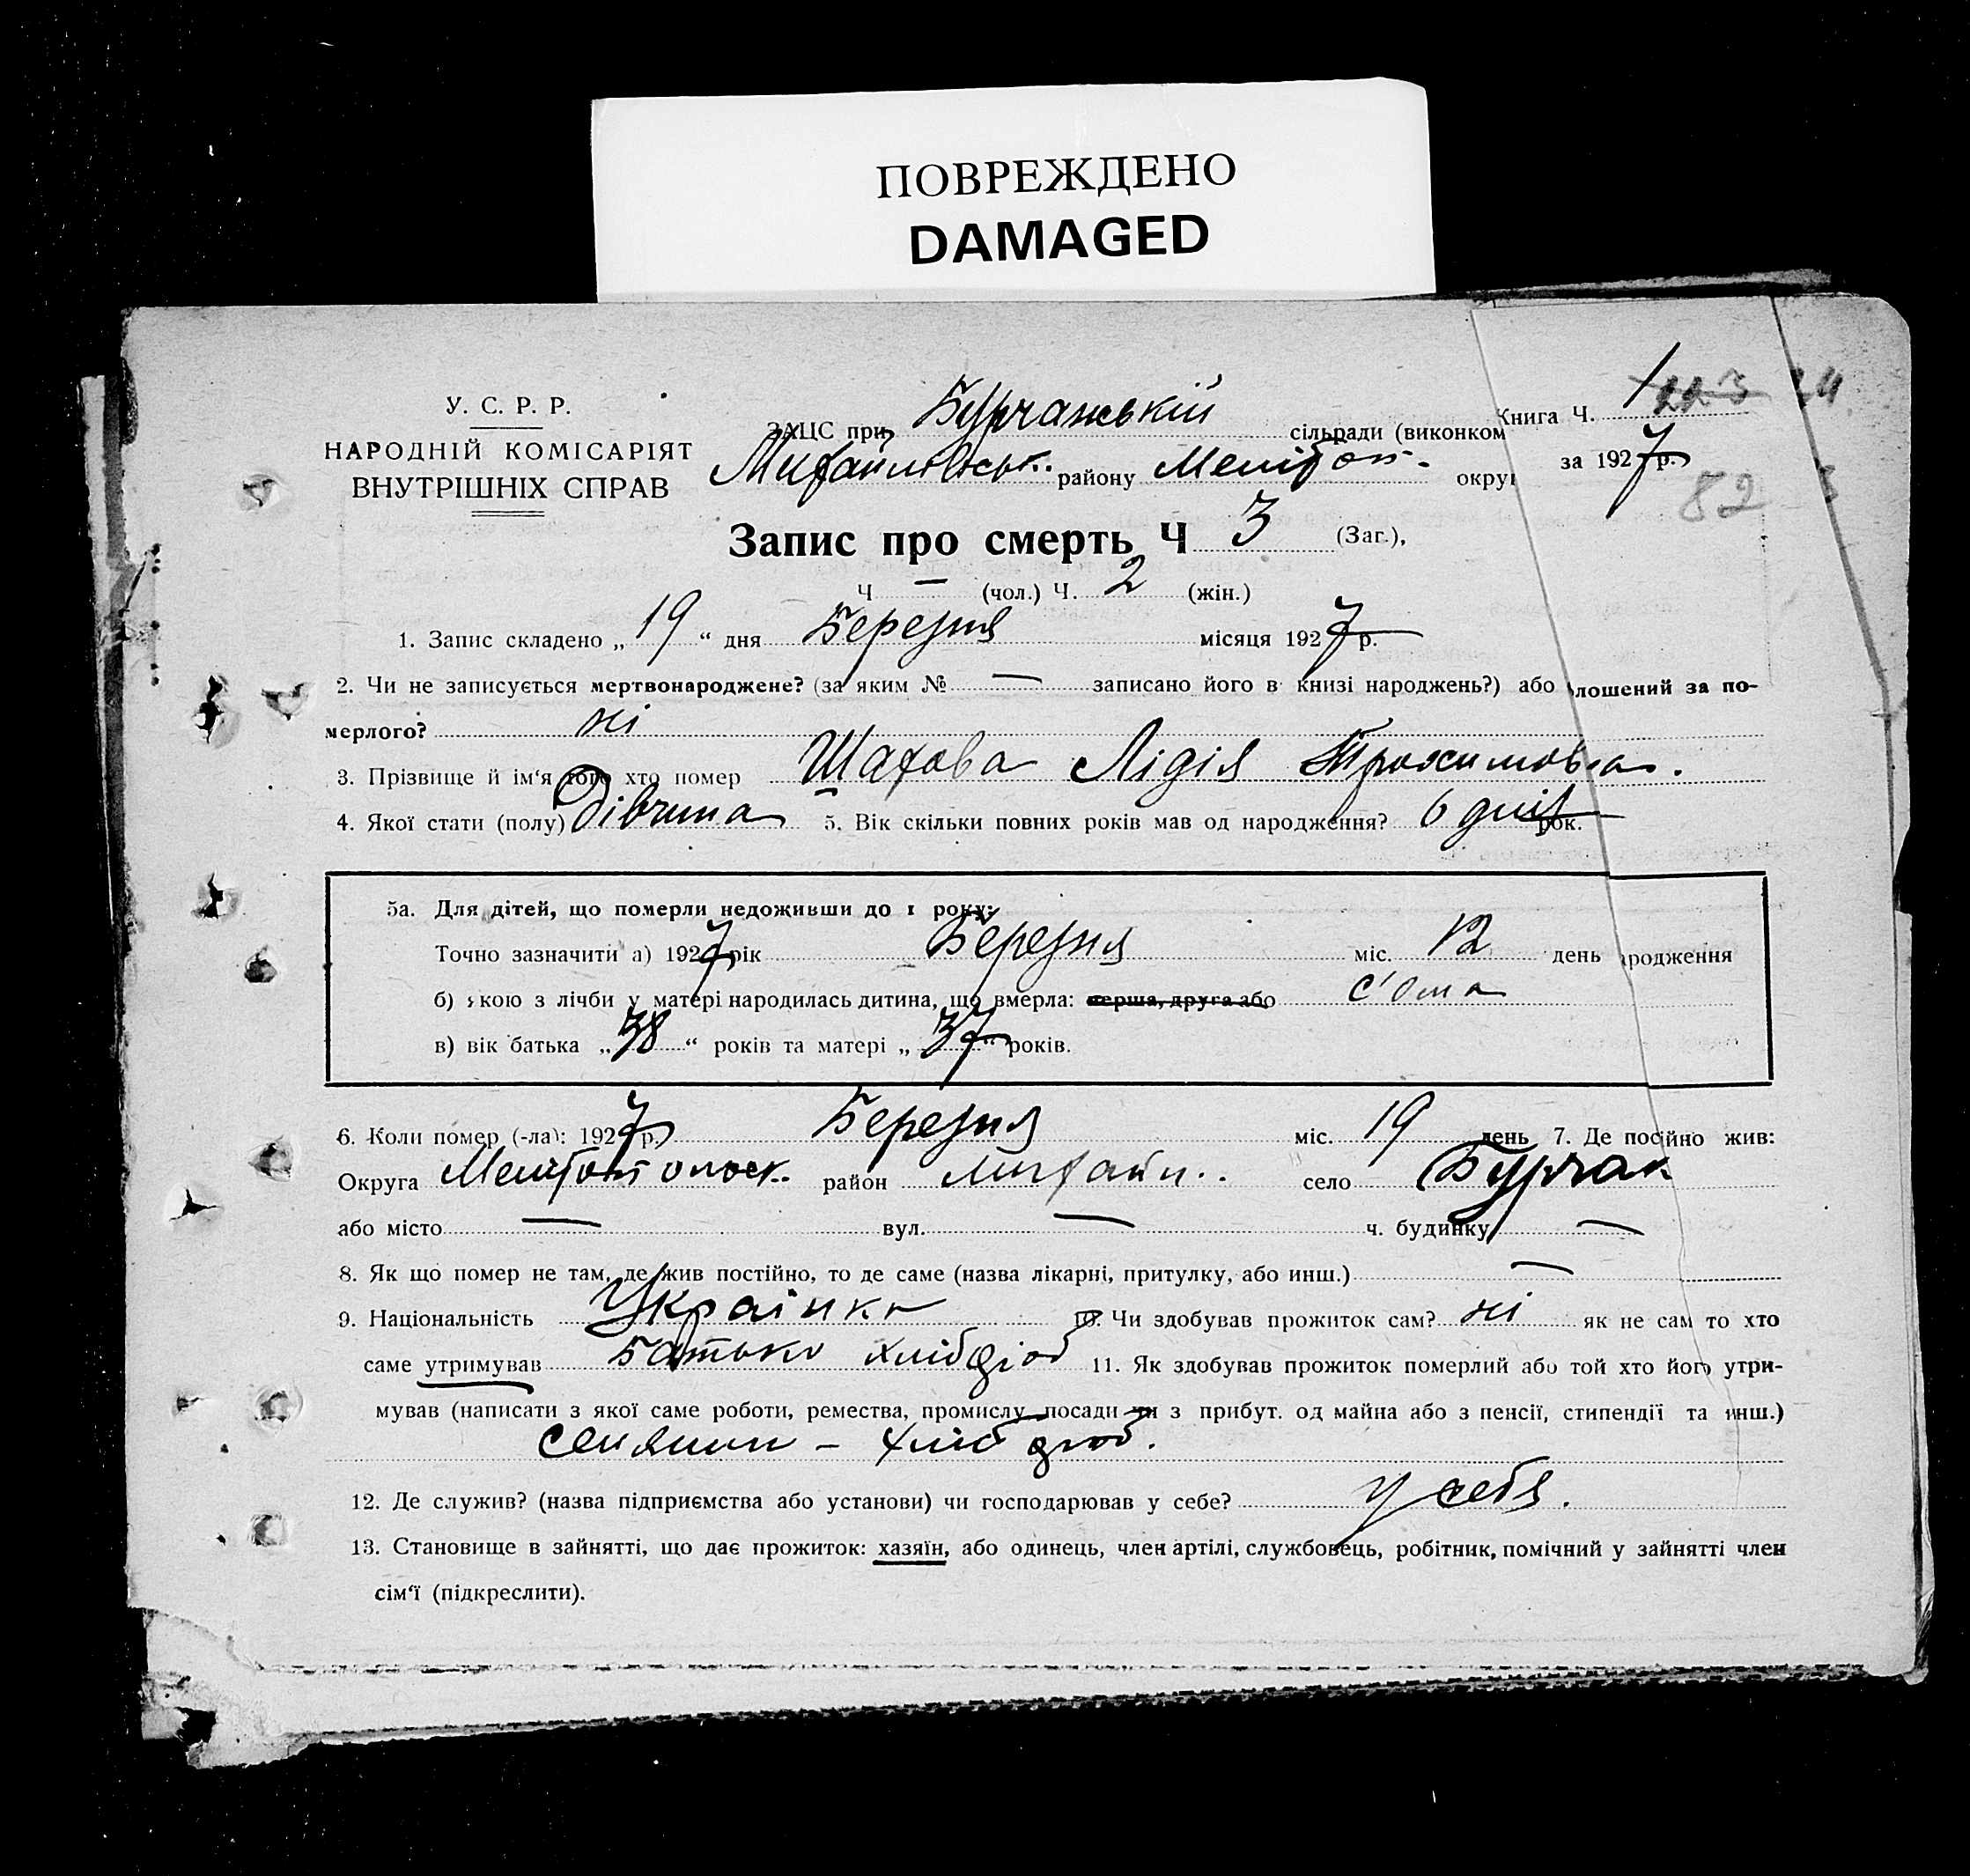 ПОВРЕЖДЕНО
DAMAGED
У. С. Р. Р.
НАРОДНІЙ КОМІСАРІЯТ
ВНУТРІШНІХ СПРАВ
ЗАЦС при Бурчанській сільради (виконком
Михайлівськ. району Мелітоп. округ
Книга Ч. 1
за 1927 р.
82
Запис про смерть Ч 3 (Заг.),
Ч — (чол.) Ч. 2 (жін.)
1. Запис складено „19“ дня Березня місяця 1927 р.
2. Чи не записується мертвонароджене? (за яким № — записано його в книзі народжень?) або лошений за по-
мерлого? ні
3. Прізвище й ім'я того хто помер Шахова Лідія Трохимовна.
4. Якої стати (полу) Дівчина 5. Вік скільки повних років мав од народження? 6 днів рок.
5а. Для дітей, що померли недоживши до 1 року:
Точно зазначити а) 1927 рік Березня міс. 12 день ародження
б) якою з лічби у матері народилась дитина, що вмерла: перша, друга або с'ома
в) вік батька „38“ років та матері „37“ років.
6. Коли помер (-ла): 1927 р. Березня міс. 19 день 7. Де посійно жив:
Округа район Михайл.. село Бурчак
або місто — вул. — ч. будинку —
8. Як що помер не там, де жив постійно, то де саме (назва лікарні, притулку, або инш.) —
9. Національність Українка 10. Чи здобував прожиток сам? ні як не сам то хто
саме утримував Батько хлібороб 11. Як здобував прожиток померлий або той хто його утри-
мував (написати з якої саме роботи, ремества, промислу посади чи з прибут. од майна або з пенсії, стипендії та инш.)
селянин – хлібороб.
12. Де служив? (назва підприємства або установи) чи господарював у себе? у себя.
13. Становище в зайнятті, що дає прожиток: хазяїн, або одинець, член артілі, службовець, робітник, помічний у зайнятті член
сім'ї (підкреслити).